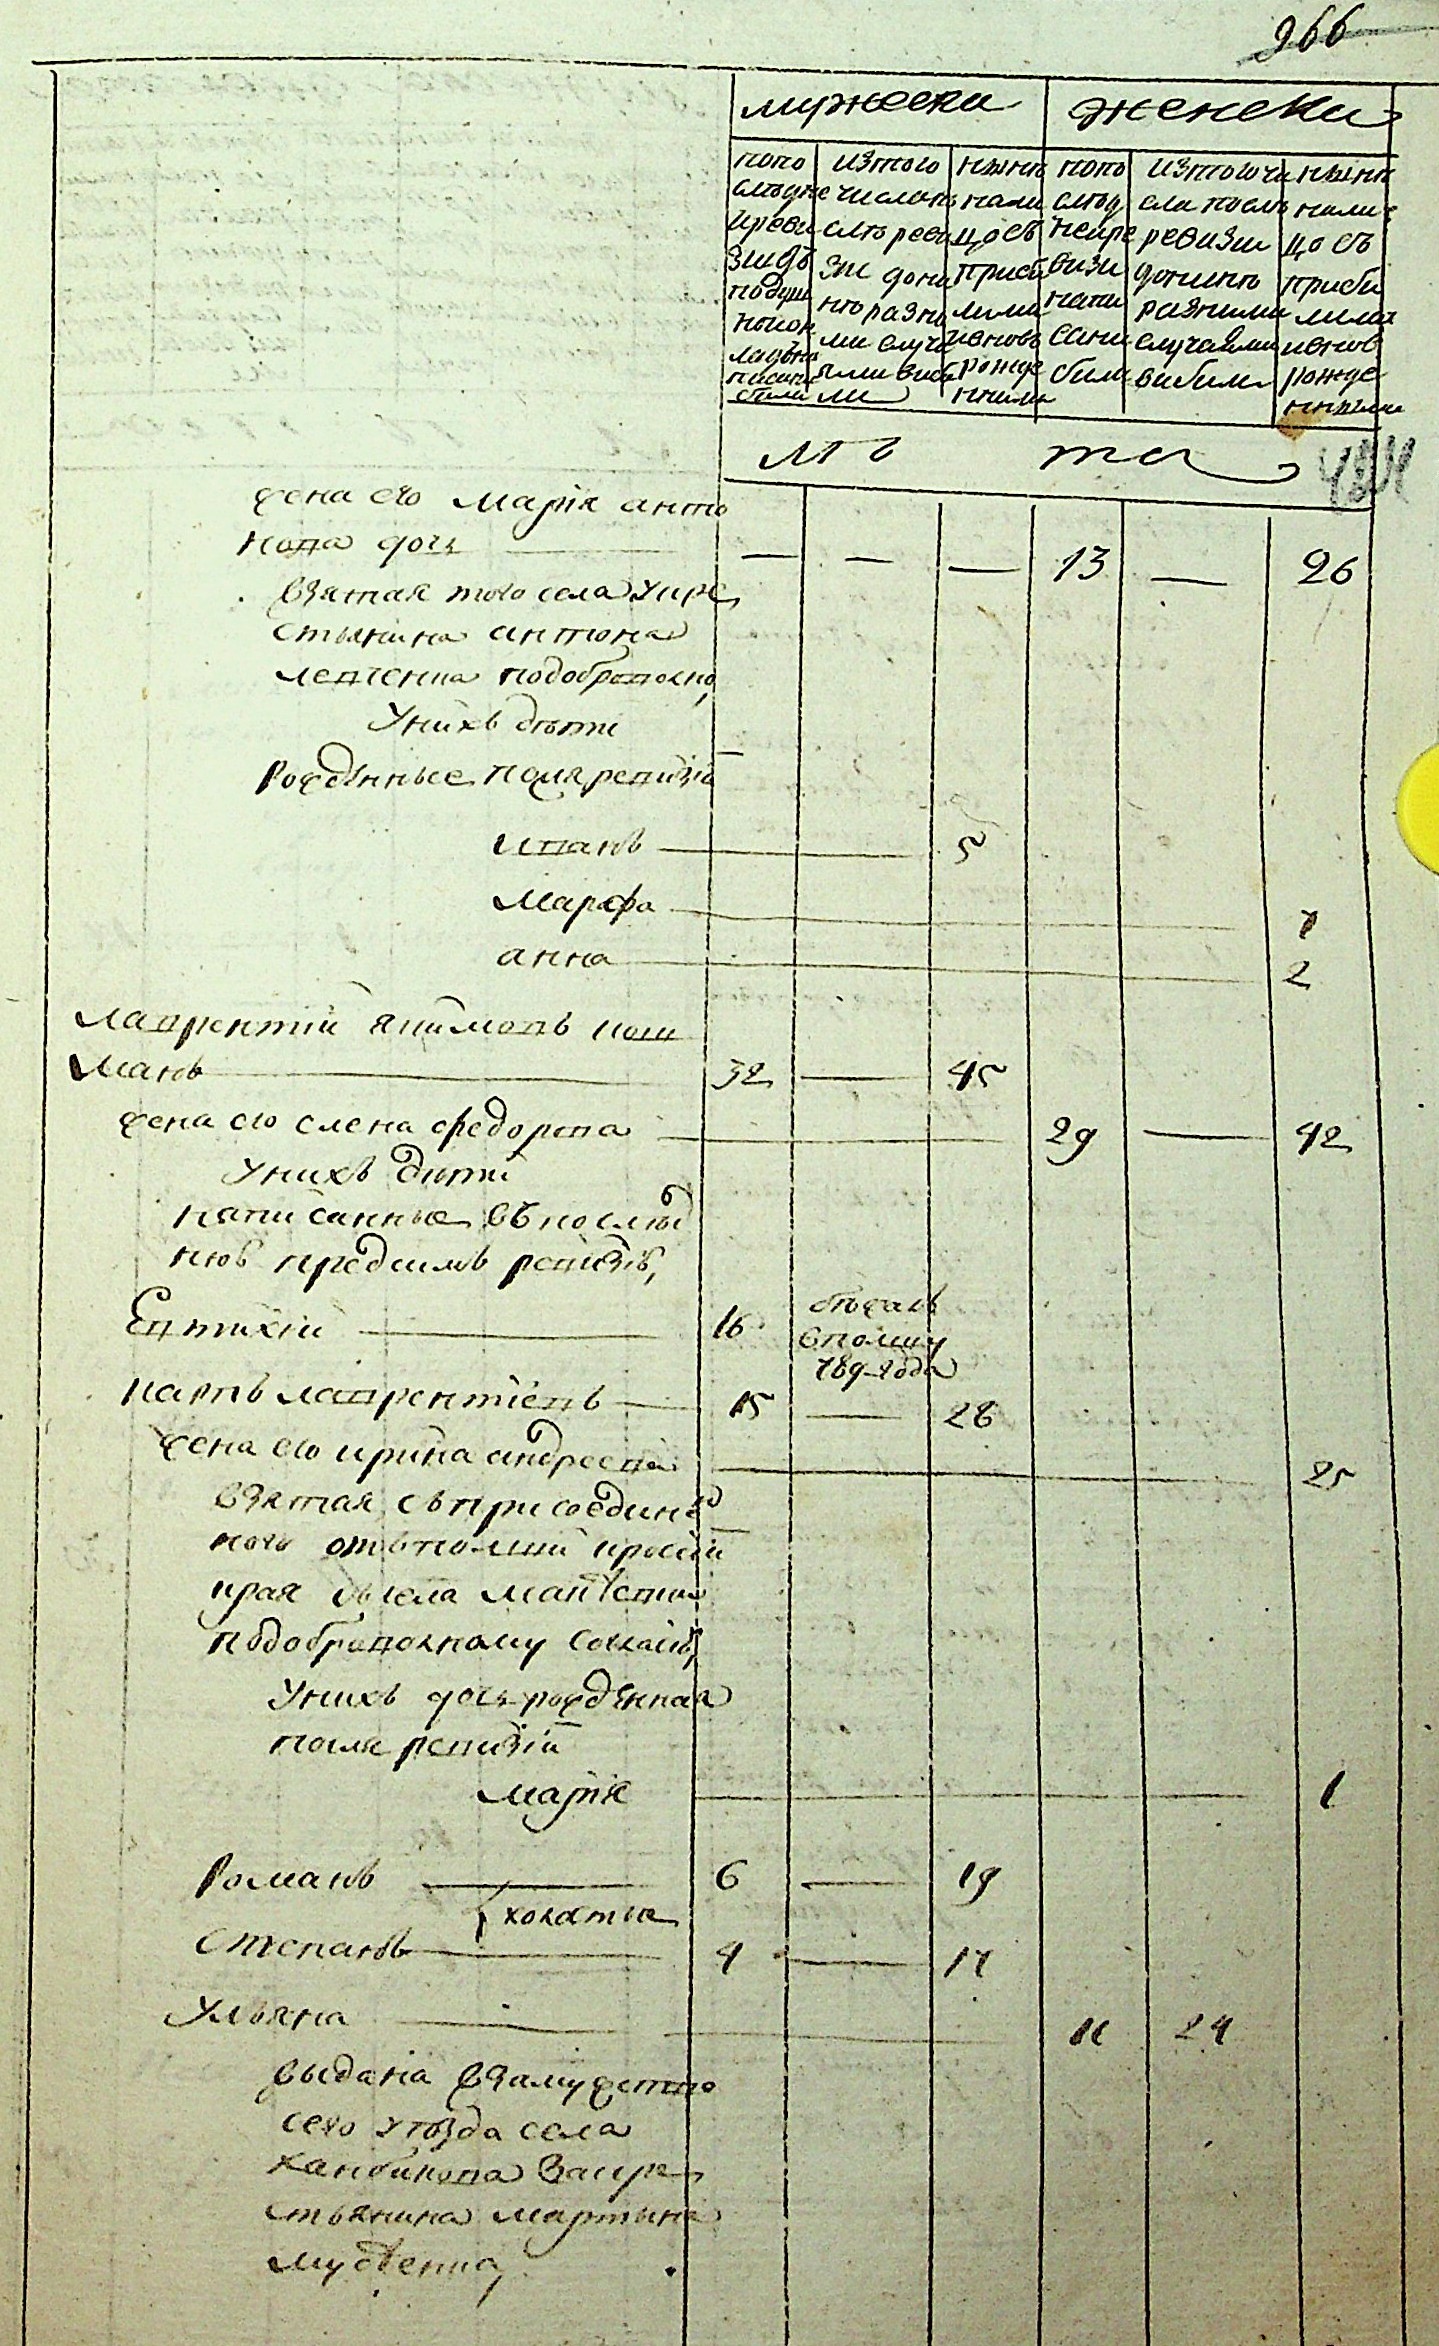 266
мужеска
женска
попо слѣдне ирѣви зиидѣ подуш нымок ладѣна писаны были
изтого числапо слѣ реви зіи дони нѣ разны ми случа ями выбы ли
нынѣ нали цосъ прибы лыми иеновъ рожде нными
попо слѣд нейре визи напи саны были
изтогочи сла послѣ ревизии донынѣ разными случаями выбыли
нынѣ нали цо съ прибы лыми иенов рожде нными
лѣ та
жена его марія анто
нова дочь — — — 13 — 26
взятая того села укре
стьянина антона
левченка подобровольно,
Унихъ дѣти
рожденные после ревизіи
иванъ 5
марфа 7
анна 2
лаврентій якимовъ кош
манъ 32 — 45
жена его елена федорова 29 — 42
Унихъ дѣти
написанные въ послѣд
нюю предсимъ ревизію,
Евтихій 16 бѣжалъ вполшу 789 года
карпъ лаврентіевъ 15 — 28
жена его ирина андреева 25
взятая съ присоединен
наго отъ полши
края села
подобровольному согласію,
Унихъ дочь рожденная
после ревизіи
марія 1
Романъ 6 — 19
холостые
Степанъ 4 — 17
Ульяна 11 24
выдана взамужство
сего уѣзда села
Закре
стьянина мартина